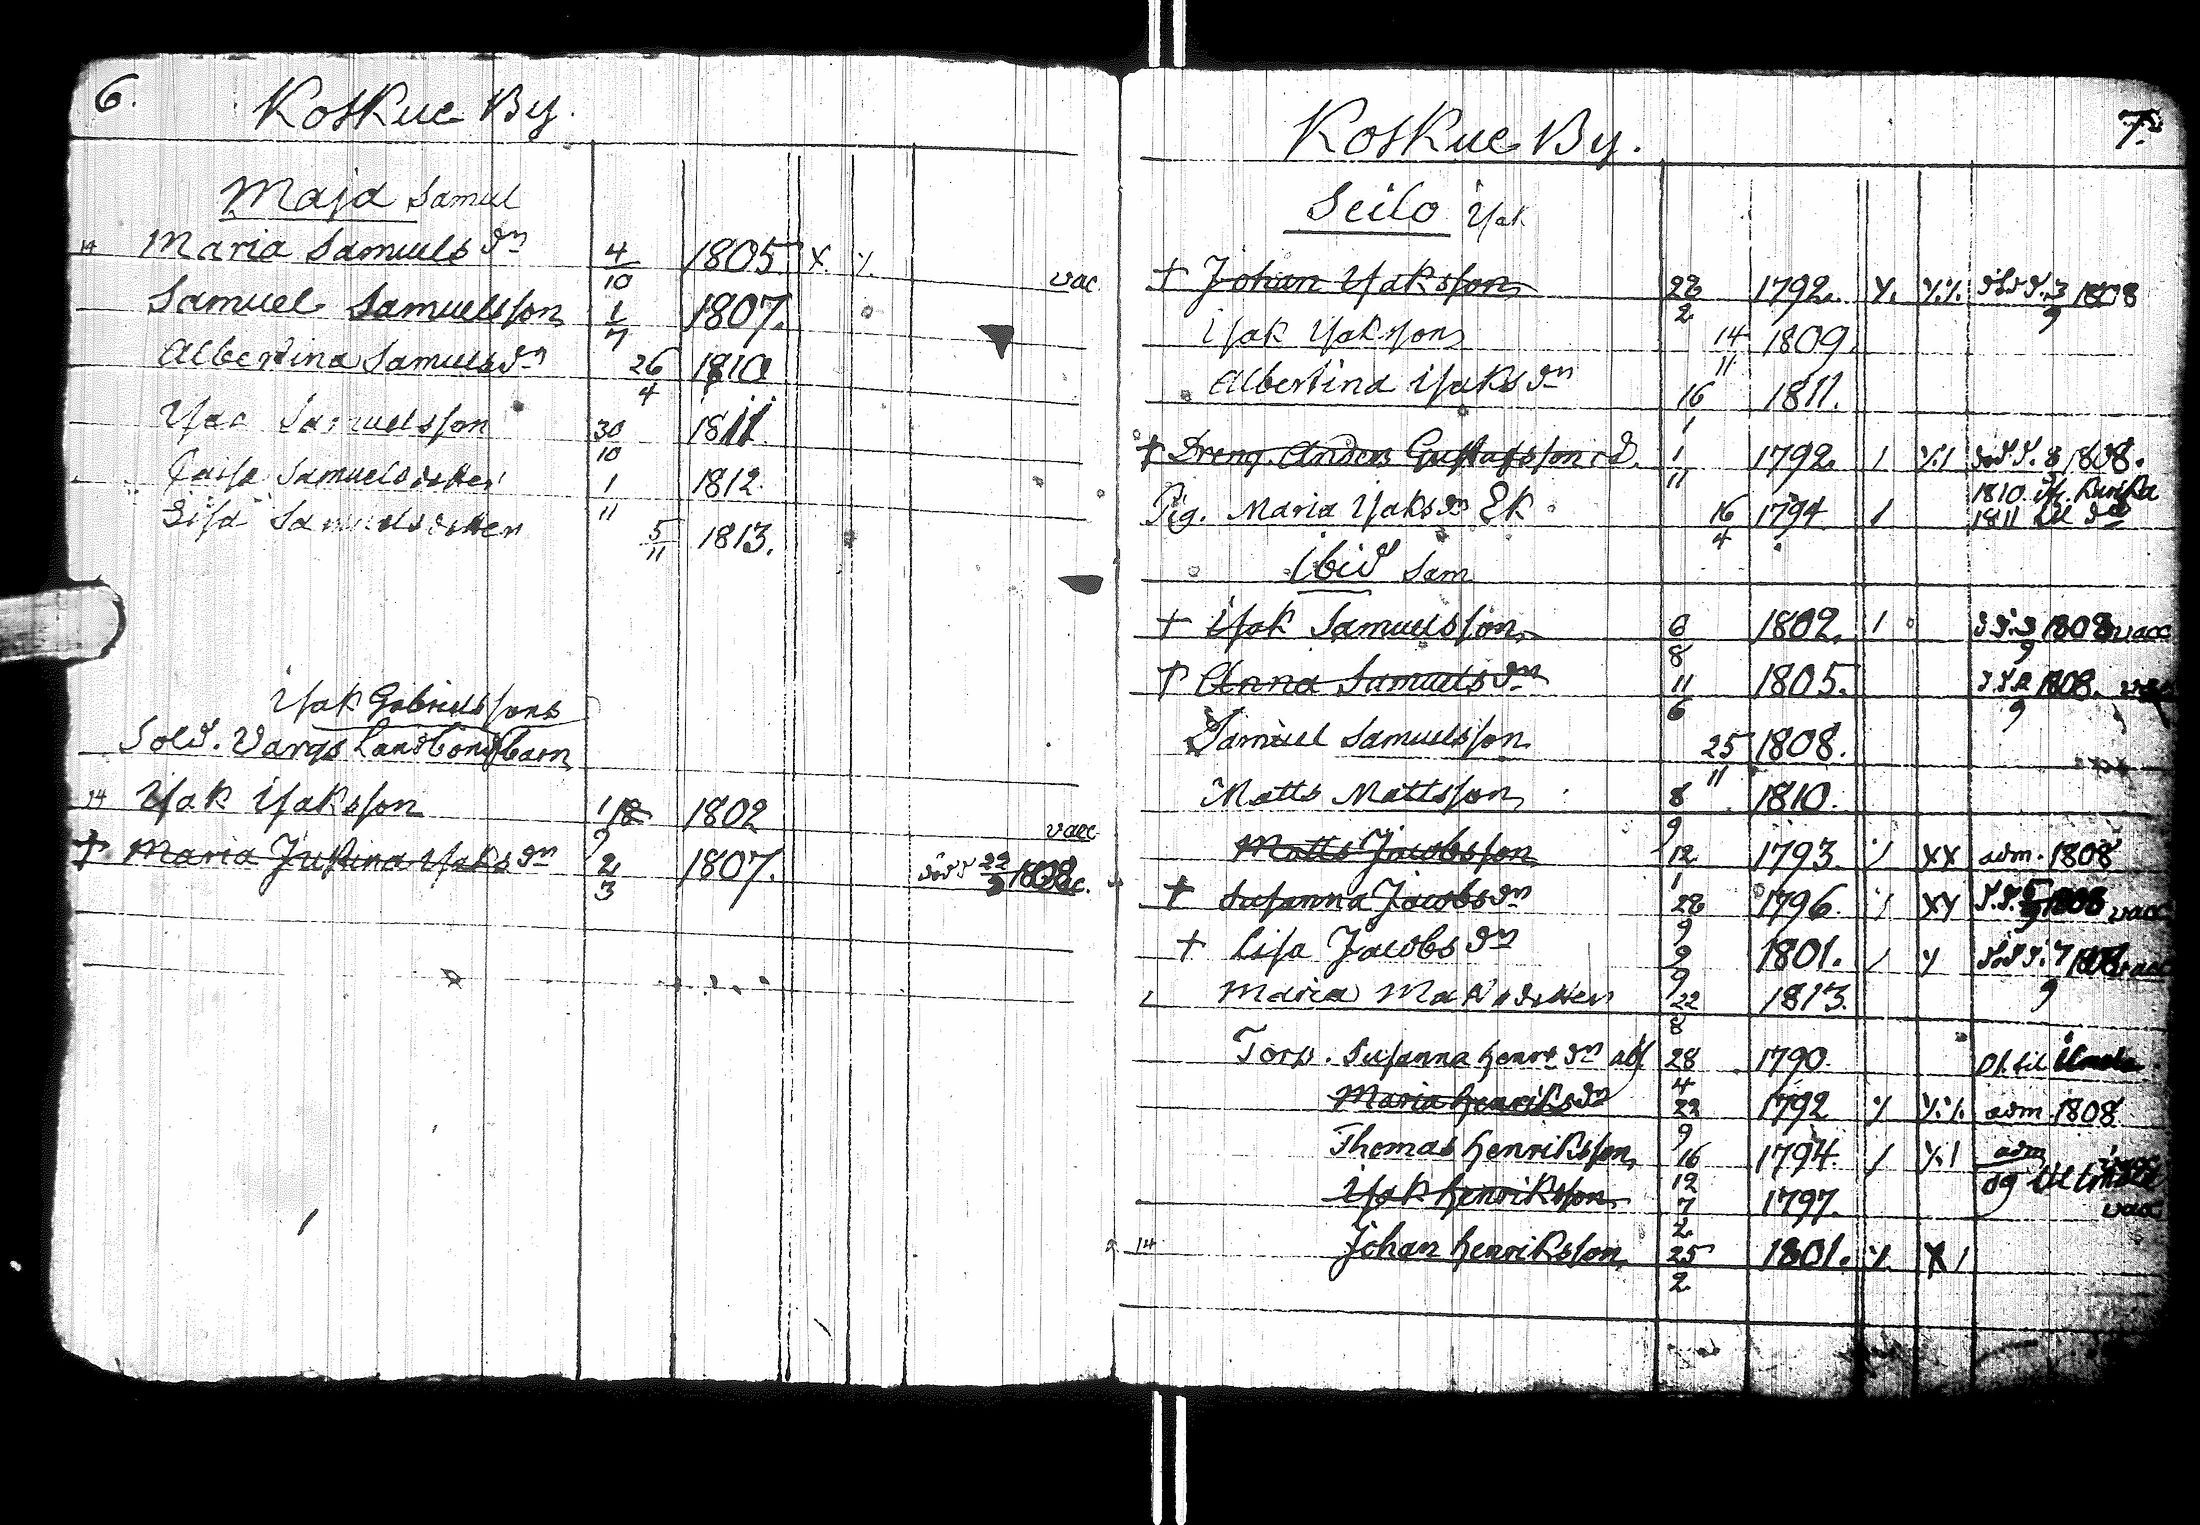 6.
Koskue By.
Maja Samuel
14 Maria Samuels dn 4/10 1805 X. ⁒ vac
Samuel Samuelsson 1/7 1807.
Albertina Samuelsdn 26/4 1810
Isac Samuelsson 30/10 1811
Caisa Samuelsdotter 1/11 1812
Lisa Samuelsdotter 5/11 1813.
Isak Gabrielssons
Sold. Vargs Landbond barn
14 Isak Isaksson 1802 vacc
† Maria Justina Isaks dn 2/3 1807. död d 22/3 1808
7.
Koskue By.
Seilo Isak
† Johan Isaksson 22/2 1792. död d. 3/9 1808
Isak Isaksson 14/11 1809.
Albertina Isaksdn 16/1 1811.
† Dreng. Anders Gustafsson 1/11 1792. / död d. 8 1808.
Pig. Maria Isaks dn Ek 16/4 1794 / 1810 1811
ibid Sam
† Isak Samuelsson 6/8 1802. / d. d. 3/9 1808 vacc
† Anna Samuelsdn 11/6 1805. d. d. 2/9 1808.
Samuel Samuelsson 25/11 1808.
Matts Mattsson 8/9 1810.
Matts Jacobsson 12/1 1793. XX adm. 1808
† Susanna Jacobsdn 22/9 1796. XX d. d. 5/9 1808 vacc
† Lisa Jacobs dn 9/9 1801. / död d. 7/9 1808 vacc
Maria Matsdotter 22/8 1813.
Torp. Susanna Henr dn 28/4 1790. til
Maria Henriksdn 22/9 1792 adm. 1808
Thomas Henriksson 16/12 1794. / adm
Isak Henriksson 7/2 1797. vacc
14 Johan Henriksson 25/2 1801.